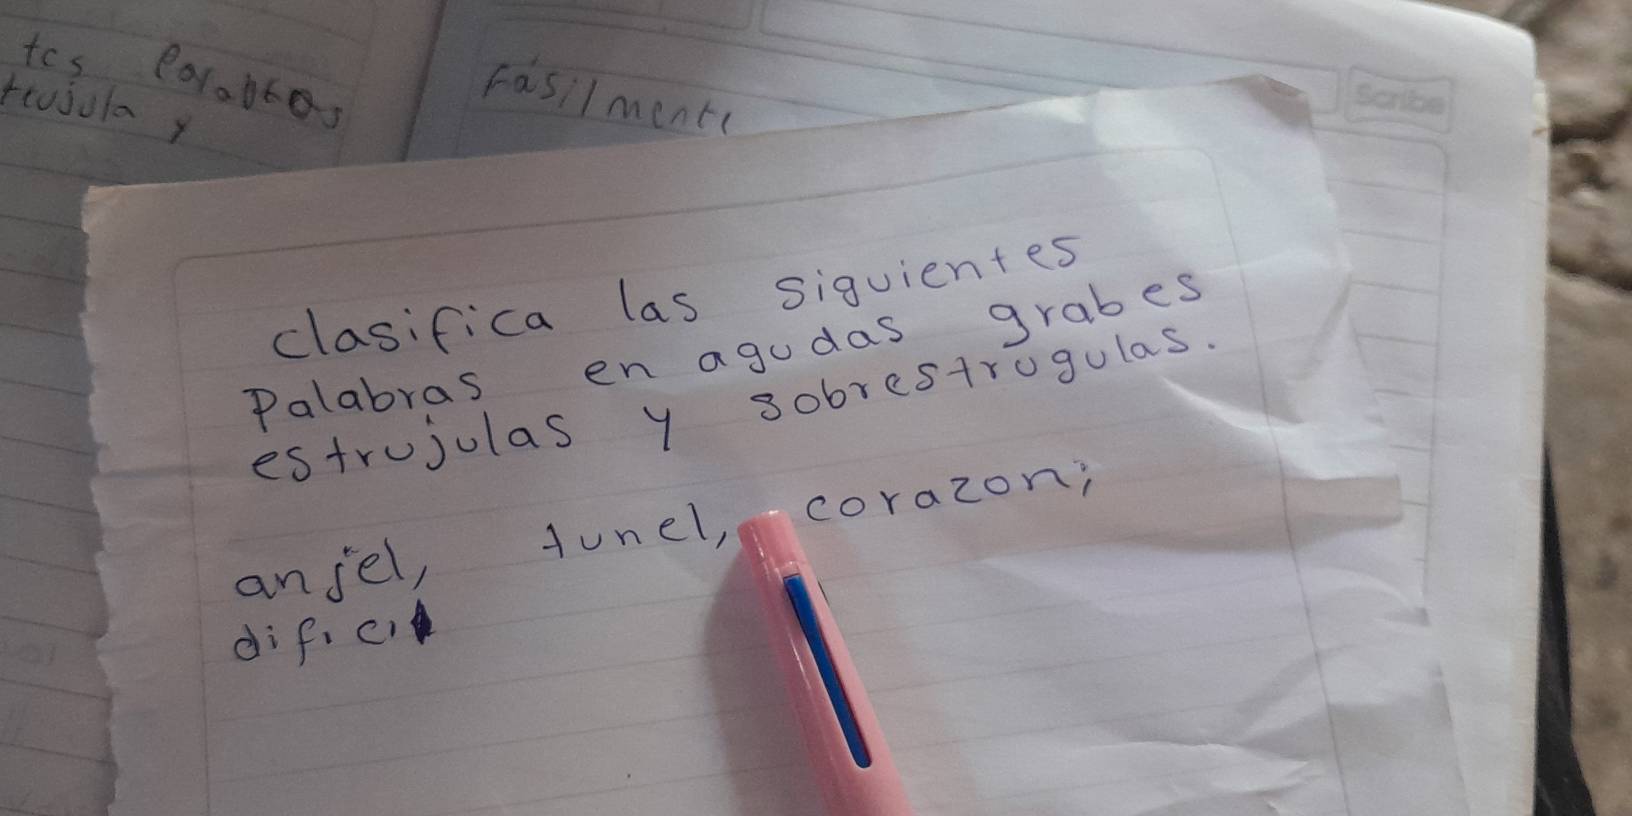 tes Palabras
trujula y
Fásilmente
Scribe
clasifica las siguientes
Palabras en agudas grabes
estrujulas y sobrestrugulas.
anjel, tunel, corazon;
dificil